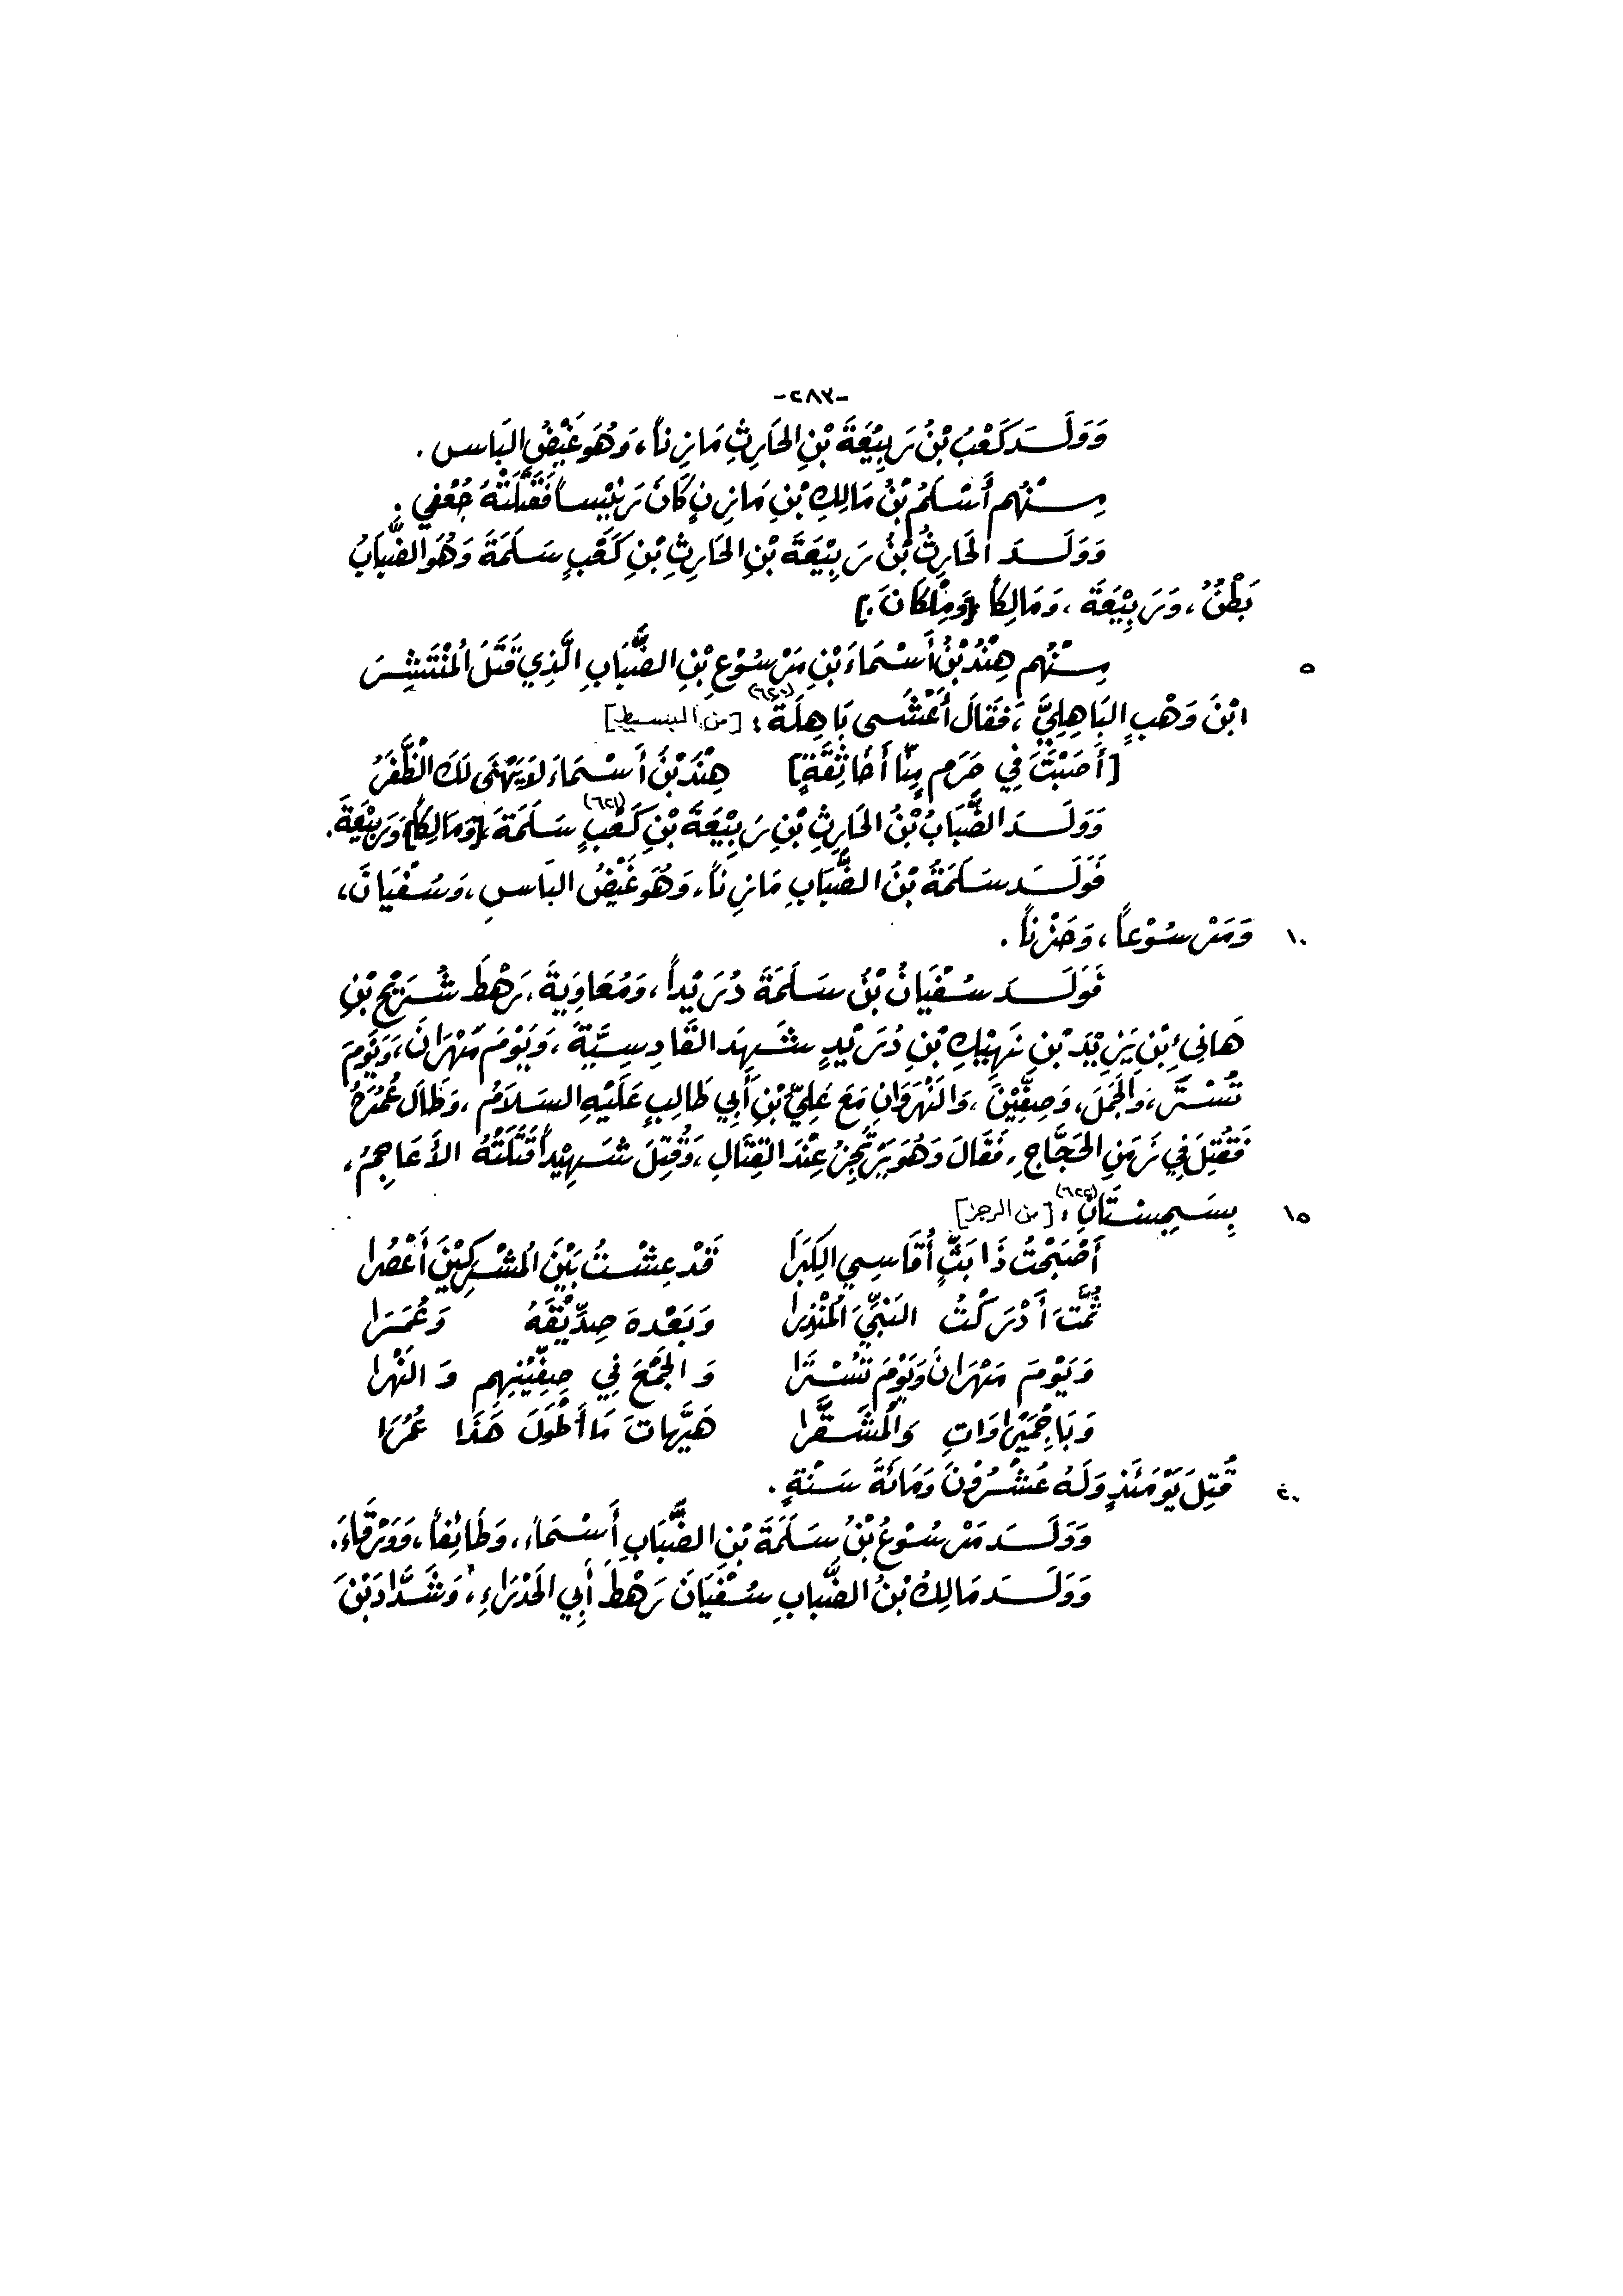 -٢٨٧-
وَوَلَدَ كَعْبُ بْنُ رَبِيْعَةَ بْنِ الحَارِثِ مَازِناً، وَهُوَ غَيْضُ البَاسِ .
مِنْهُم أَسْلَمُ بْنُ مَالِكِ بْنِ مَازِنٍ كَانَ رَئِيْساً فَقَتَلَتْهُ جُعْفِي .
وَوَلَدَ الحَارِثُ بْنُ رَبِيْعَةَ بْنِ الحَارِثِ بْنِ كَعْبٍ سَلَمَةَ وَهُوَ الضَّبَابُ
بَطْنٌ، وَرَبِيْعَةَ، وَمَالِكاً [وَمِلْكَانَ.]
٥ مِنْهُم هِنْدُ بْنُ أَسْمَاءَ بْنِ مَرْسُوْعِ بْنِ الضَّبَابِ الَّذِي قَتَلَ المُنْتَشِرَ
ابْنَ وَهْبٍ البَاهِلِيَّ، فَقَالَ أَعْشَى بَاهِلَةَ(٦٢٠): [من البسيط]
[أَصَبْتَ فِي حَرَمٍ مِنَّا أَخَا ثِقَةٍ] هِنْدَ بْنَ أَسْمَاءَ لَا يَهْنَى لَكَ الظَّفَرُ
وَوَلَدَ الضَّبَابُ بْنُ الحَارِثِ بْنِ رَبِيْعَةَ بْنِ كَعْبٍ(٦٢١) سَلَمَةَ، [وَمَالِكاً] وَرَبِيْعَةَ.
فَوَلَدَ سَلَمَةُ بْنُ الضَّبَابِ مَازِناً، وَهُوَ غَيْضُ البَاسِ، وَسُفْيَانَ،
١٠ وَمَرْسُوْعاً، وَحَزْناً .
فَوَلَدَ سُفْيَانُ بْنُ سَلَمَةَ دُرَيْداً، وَمُعَاوِيَةَ، رَهْطَ شُرَيْحِ بْنِ
هَانِئِ بْنِ يَزِيْدَ بْنِ نَهِيْكِ بْنِ دُرَيْدٍ شَهِدَ القَادِسِيَّةَ، وَيَوْمَ مَهْرَانَ، وَيَوْمَ
تُسْتَرَ، وَالجَمَلَ، وَصِفِّيْنَ، وَالنَّهْرَوَانِ مَعَ عَلِيِّ بْنِ أَبِي طَالِبٍ عَلَيْهِ السَلَامُ، وَطَالَ عُمُرُهُ
فَقُتِلَ فِي زَمَنِ الحَجَّاجِ، فَقَالَ وَهُوَ يَرْتَجِزُ عِنْدَ القِتَالِ، وَقُتِلَ شَهِيْداً قَتَلَتْهُ الأَعَاجِمُ،
١٥ بِسَجِسْتَانَ(٦٢٢): [من الرجز]
أَصْبَحْتُ ذَا بَثٍّ أُقَاسِي الكِبَرَا قَدْ عِشْتُ بَيْنَ المُشْرِكِيْنَ أَعْصُرَا
ثُمَّتَ أَدْرَكْتُ النَبِيَّ المُنْذِرَا وَبَعْدَهُ صِدِّيْقَهُ وَعُمَرَا
وَيَوْمَ مَهْرَانَ وَيَوْمَ تُسْتَرَا وَالجَمْعَ فِي صِفِّيْنِهِم وَالنَهَرَا
وَبَاجُمَيْرَاوَاتِ وَالمُشَقَّرَا هَيْهَاتَ مَا أَطْوَلَ هَذَا عُمُرَا
٢٠ قُتِلَ يَوْمَئِذٍ وَلَهُ عِشْرُوْنَ وَمَائَةَ سَنَةٍ .
وَوَلَدَ مَرْسُوْعُ بْنُ سَلَمَةَ بْنِ الضَّبَابِ أَسْمَاءَ، وَطَائِفاً، وَوَرْقَاءَ.
وَوَلَدَ مَالِكُ بْنُ الضَّبَابِ سُفْيَانَ رَهْطَ أَبِي الحَدْرَاءِ، وَشَدَّادَ بْنَ